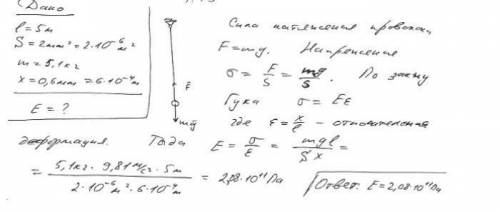 Дано
l = 5м
S = 2мм² = 2·10⁻⁶м²
m = 5,1кг
x = 0,6мм = 6·10⁻⁴м
E = ?
F
mg
Сила натяжения проволоки
F = mg. Напряжения
σ = F/S = mg/S. По закону
Гука σ = Eε
где ε = x/l – относительная
деформация. Тогда E = σ/ε = mgl/Sx =
= 5,1кг · 9,81м/с² · 5м / 2·10⁻⁶м² · 6·10⁻⁴м = 2,08·10¹¹Па
Ответ: E = 2,08·10¹¹Па